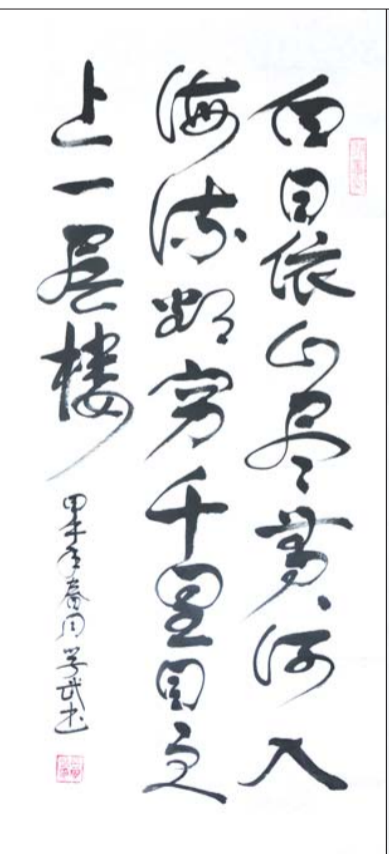 白日依山尽黄河入
海流欲穷千里目更
上一层楼
甲午年春月学武书